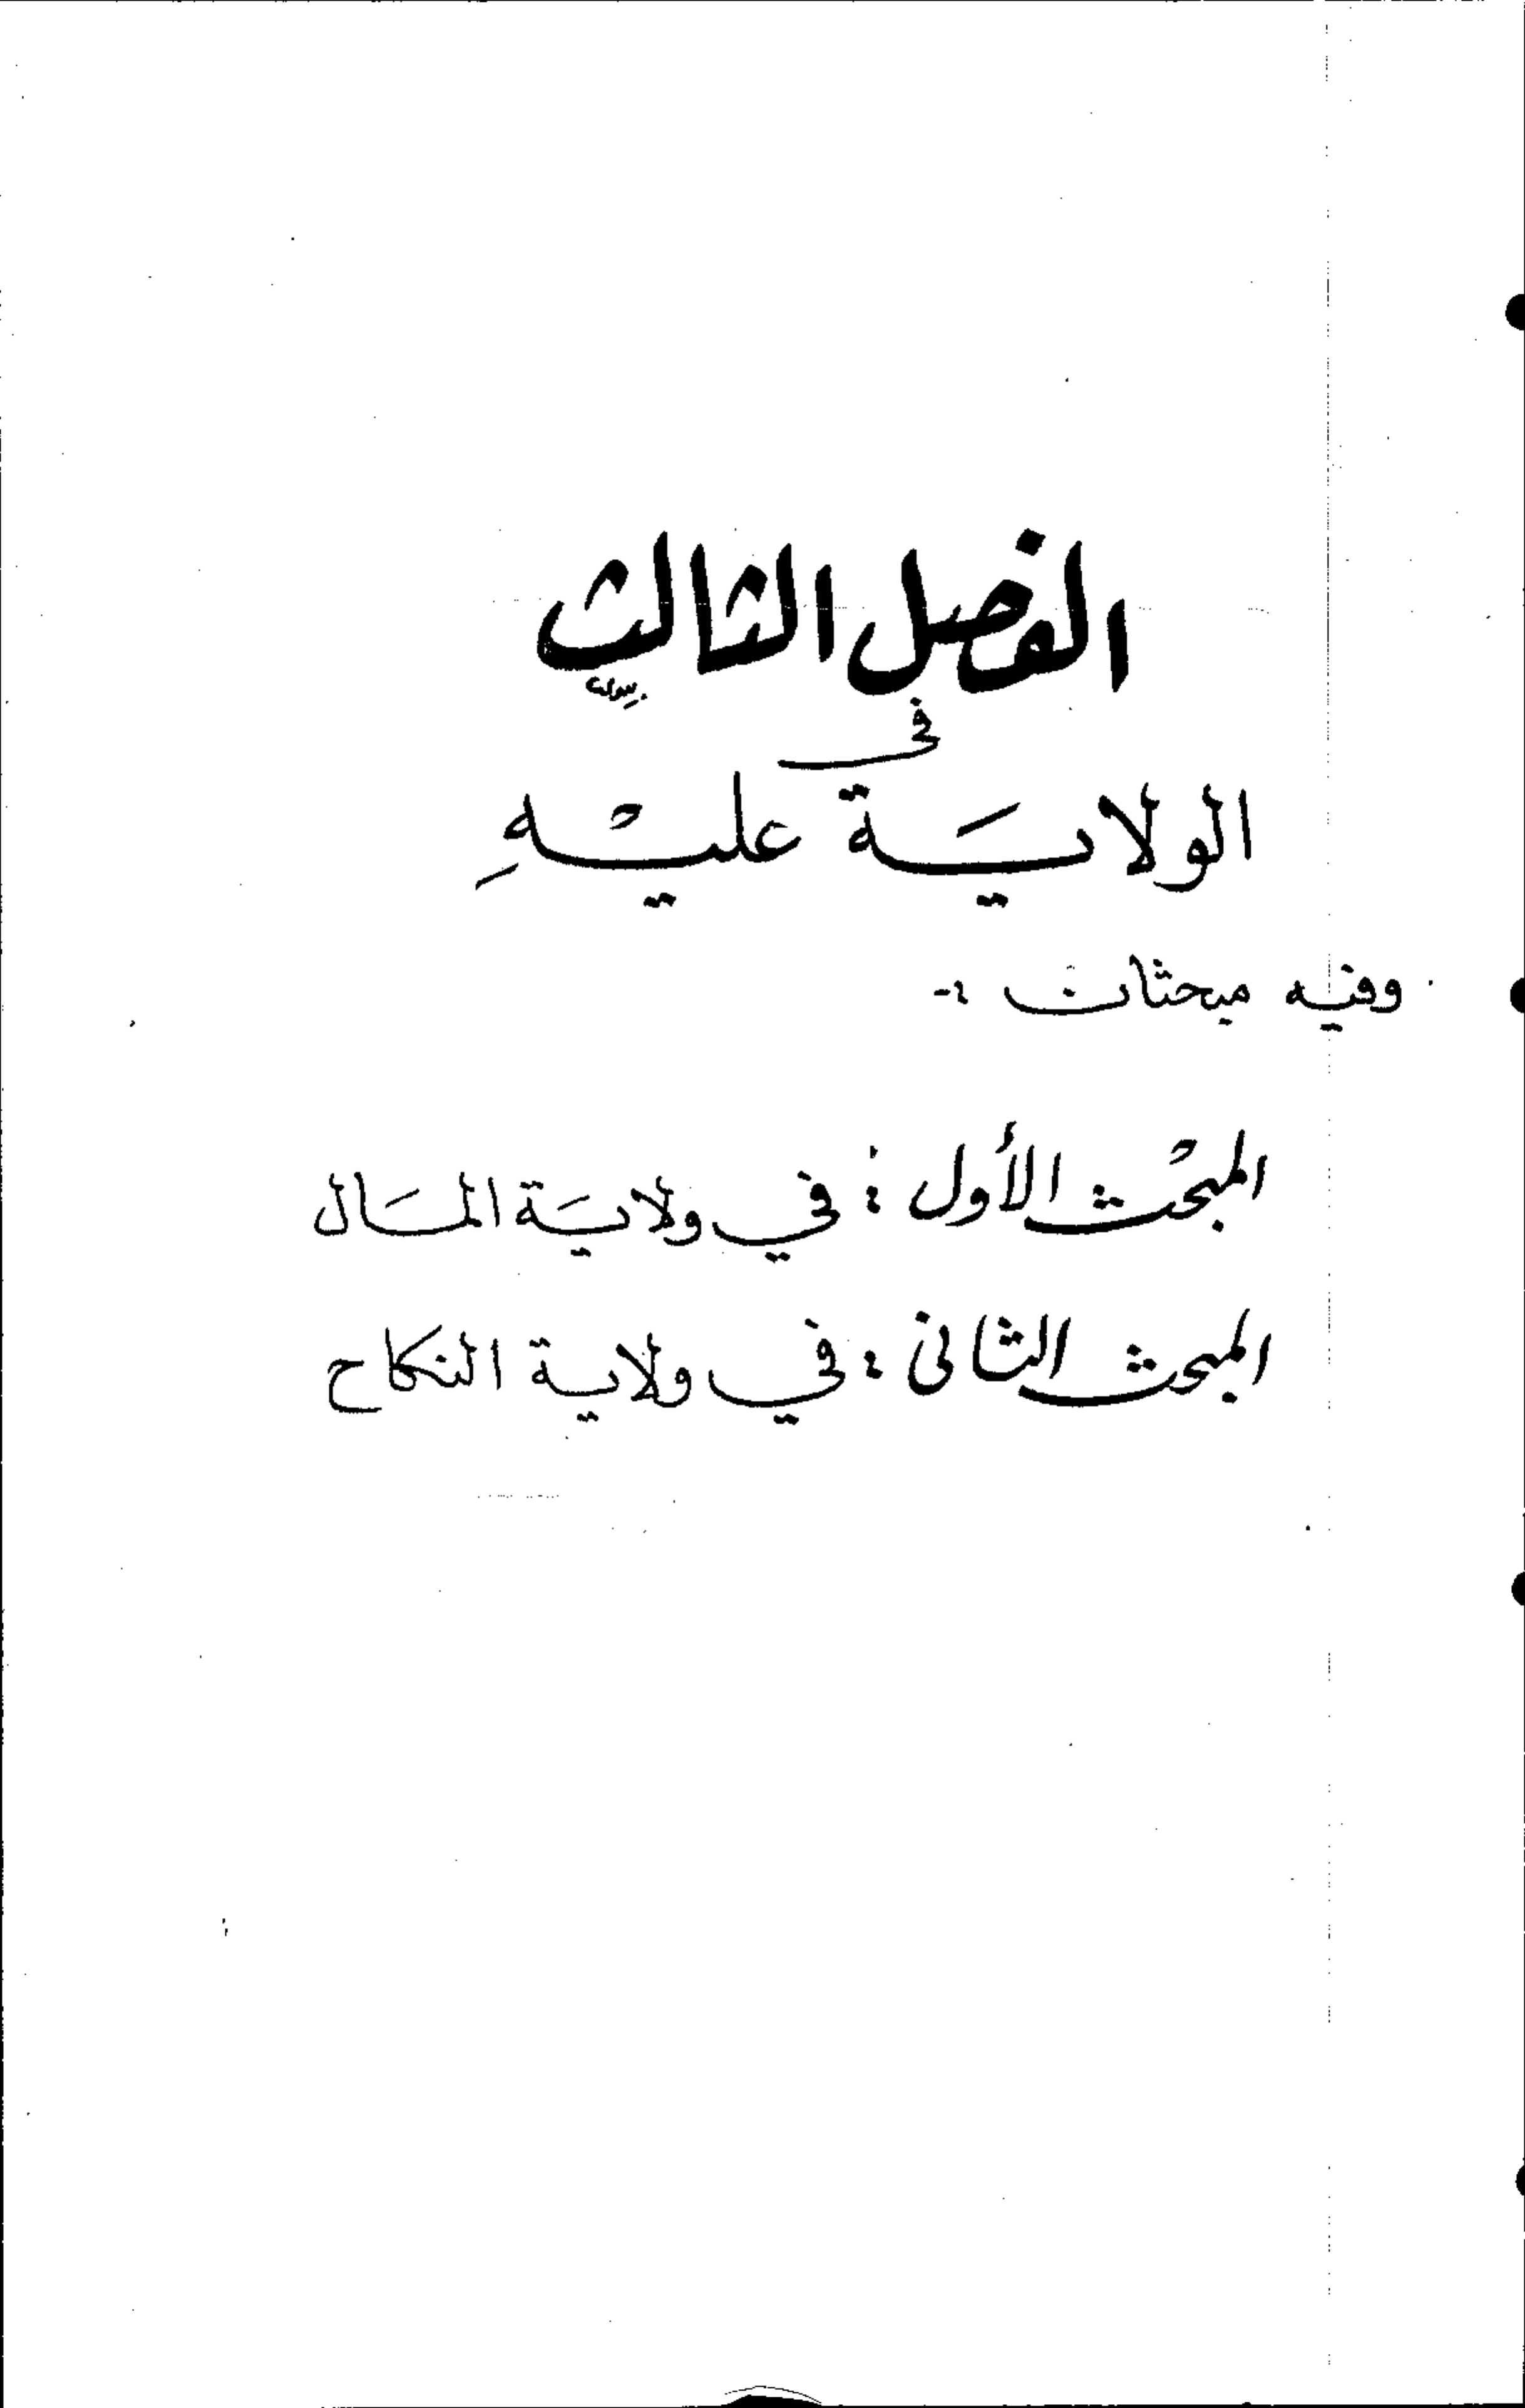 الفصل الثالث
في
الولايَة عليْهِ
وفيه مبحثان :-
المبحْث الأول : في ولايَة المَال
المبحث الثاني : في ولاية النكاح